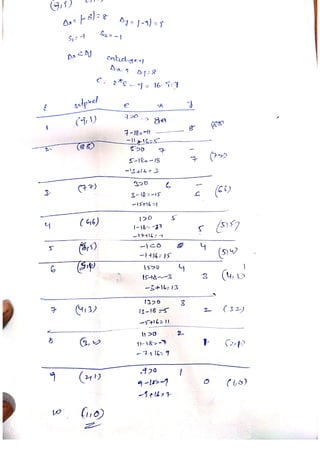 Δx = |-8| = 8 Δy = |-9| = 9
S₁ = -1 S₂ = -1
Δx < Δy interchange
Δx = 9 Δy = 8
e = 2*8 - 9 = 16-9 = 7
i setpixel e x y
1 (9,9) 7>0 8
7-18=-11 8 (8,8)
-11+16=5
2 (8,8) 5>0 7 -
5-18=-13 7 (7,7)
-13+16=3
3 (7,7) 3>0 6 -
3-18=-15 6 (6,6)
-15+16=1
4 (6,6) 1>0 5
1-18=-17 5 (5,5)
-17+16=-1
5 (5,5) -1<0 4
-1+16=15 (5,4)
6 (5,4) 15>0 4
15-18=-3 3 (4,3)
-3+16=13
7 (4,3) 13>0 3
13-18=-5 2 (3,2)
-5+16=11
8 (3,2) 11>0 2
11-18=-7 1 (2,1)
-7+16=9
9 (2,1) 9>0 1
9-18=-9 0 (1,0)
-9+16=7
10 (1,0)